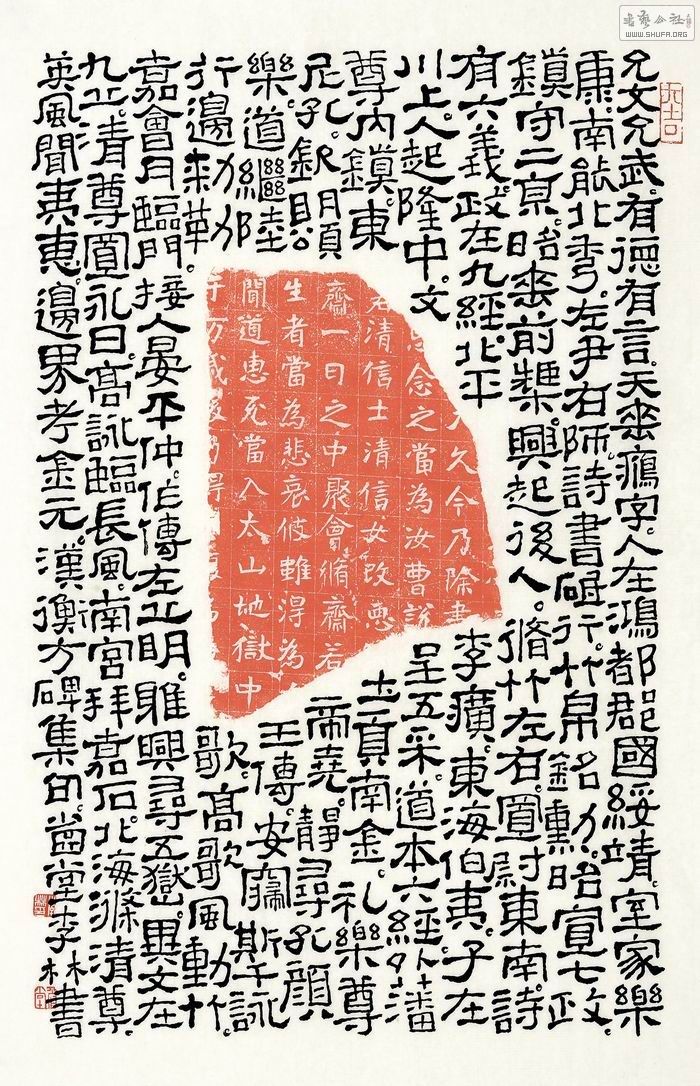 允文允武。有德有言。天來字。人在鴻都。郡國綏靖。室家樂
康。南能北秀。左尹右師。詩書行。竹帛銘昭宣七政。
鎮守二京。昭來前業。興起後人。脩竹左右。圖討東南。詩
有六義。政在九經。北平
李廣。東海伯夷。子在
川上。人起隆中。文
呈五采。道本六經。外藩
尊。內鎮。東
土貢南金。礼樂尊
尼
帝堯。靜尋孔顏
樂。道
王傳。安斯詠
行邊
歌。高歌風動竹
嘉會月臨門。接人晏平仲。作傳左丘明。雎興尋五嶽。異文在
九丘。清尊圖永日。高詠臨長風。南宮拜嘉石。北海滌清尊
英風聞夷惠。邊界考金元。漢衡方碑集句。尚堂李林書
久今乃除
念之當為汝曹說
清信士清信女改惡
齋一日之中聚會脩齋若
生者當為悲哀彼雖得為
聞道惠死當入太山地獄中
万歲 得
WWW.SHUFA.ORG